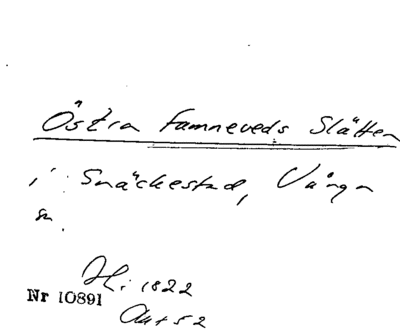 Östra Famneveds Slätten
i Snäckestad, Vånga
sn.
Hi. 1822
Nr 10891
Akt 52